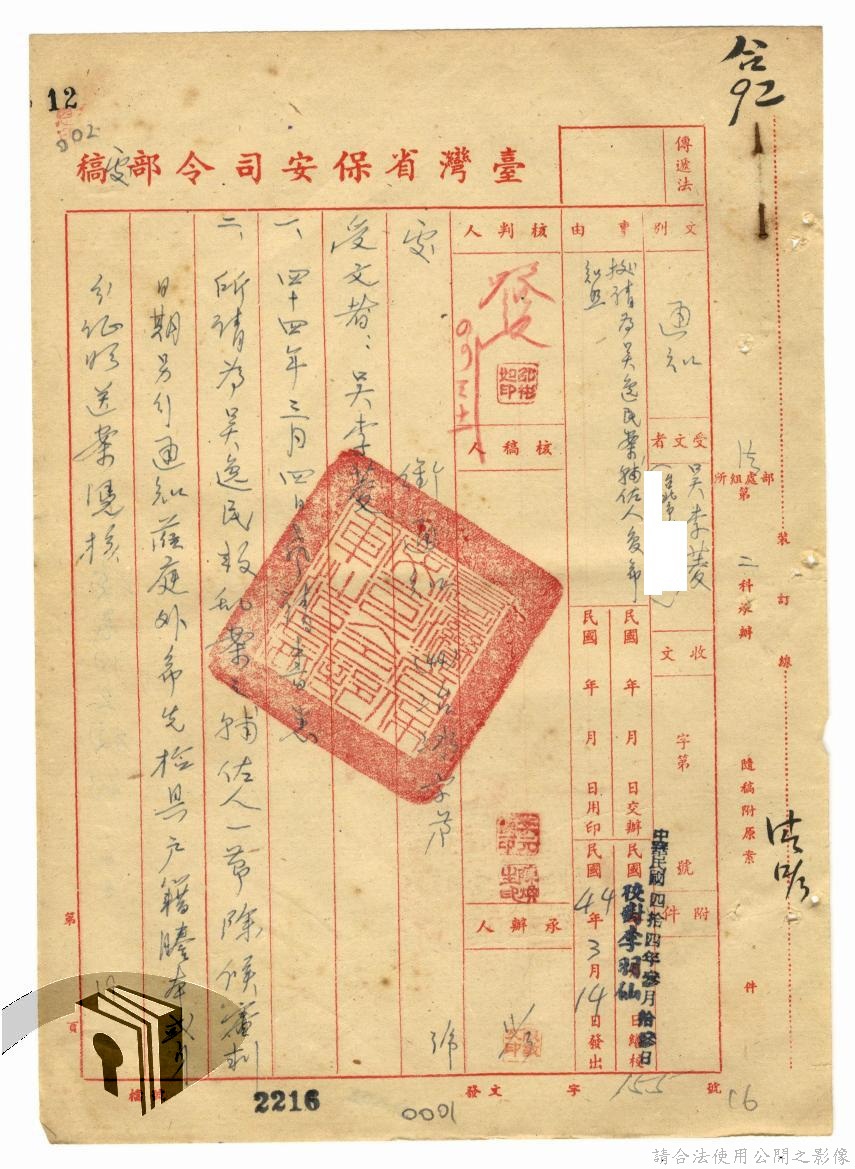 12
002
合
92
臺灣省保安司令部處稿
傳遞法
文別
通知
受文者
吳李菱
事由
據請為吳逸民案輔佐人復希
知照
核判人
發
核稿人
承辦人
收文
字第
號
附件
民國 年 月 日交辦
民國 年 月 日用印
民國44年3月14日發出
中華民國四拾四年參月拾參日
校對李羽仙
部處組所
法
第二科承辦
裝訂線
隨稿附原案
件
處
銜 通知
號
受文者:吳李菱
一、四十四年三月四日
二、所請為吳逸民叛亂案之輔佐人一節除候審判
日期另行通知蒞庭外希先檢具戶籍謄本或身
分證明送案憑核
第
頁
發文
字
155
號
檔
2216
0091
16
請合法使用公開之影像